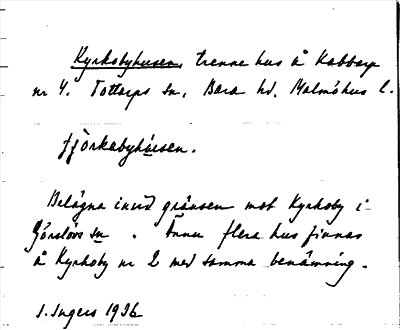 Kyrkobyhusen, trenne hus å Kabbarp
nr 4. Tottarps sn, Bara hd, Malmöhus l.
fjörkabyhúsen.
Belägna invid gränsen mot Kyrkoby i
Görslövs sn. Ännu flera hus finnas
å Kyrkoby nr 2 med samma benämning.
I. Ingers 1936